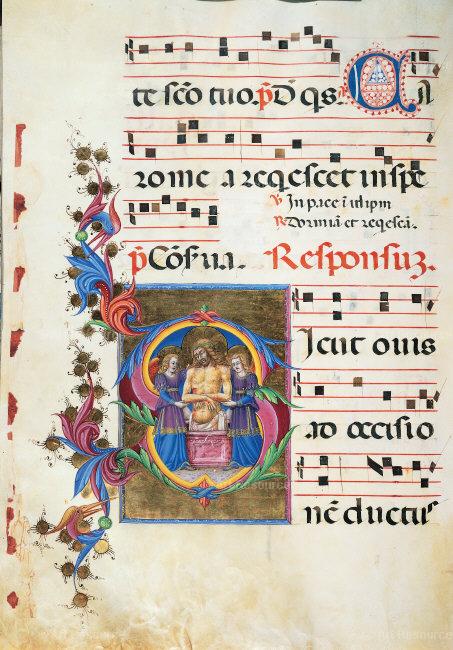 te scō tuo. p̄ D̄ qs. Ca
ro me a reqescet in spe
℣ In pace ī idipm
℟ Dormiā et reqescā.
Responsuz.
Sicut ouis
ad occisio
nē ductus